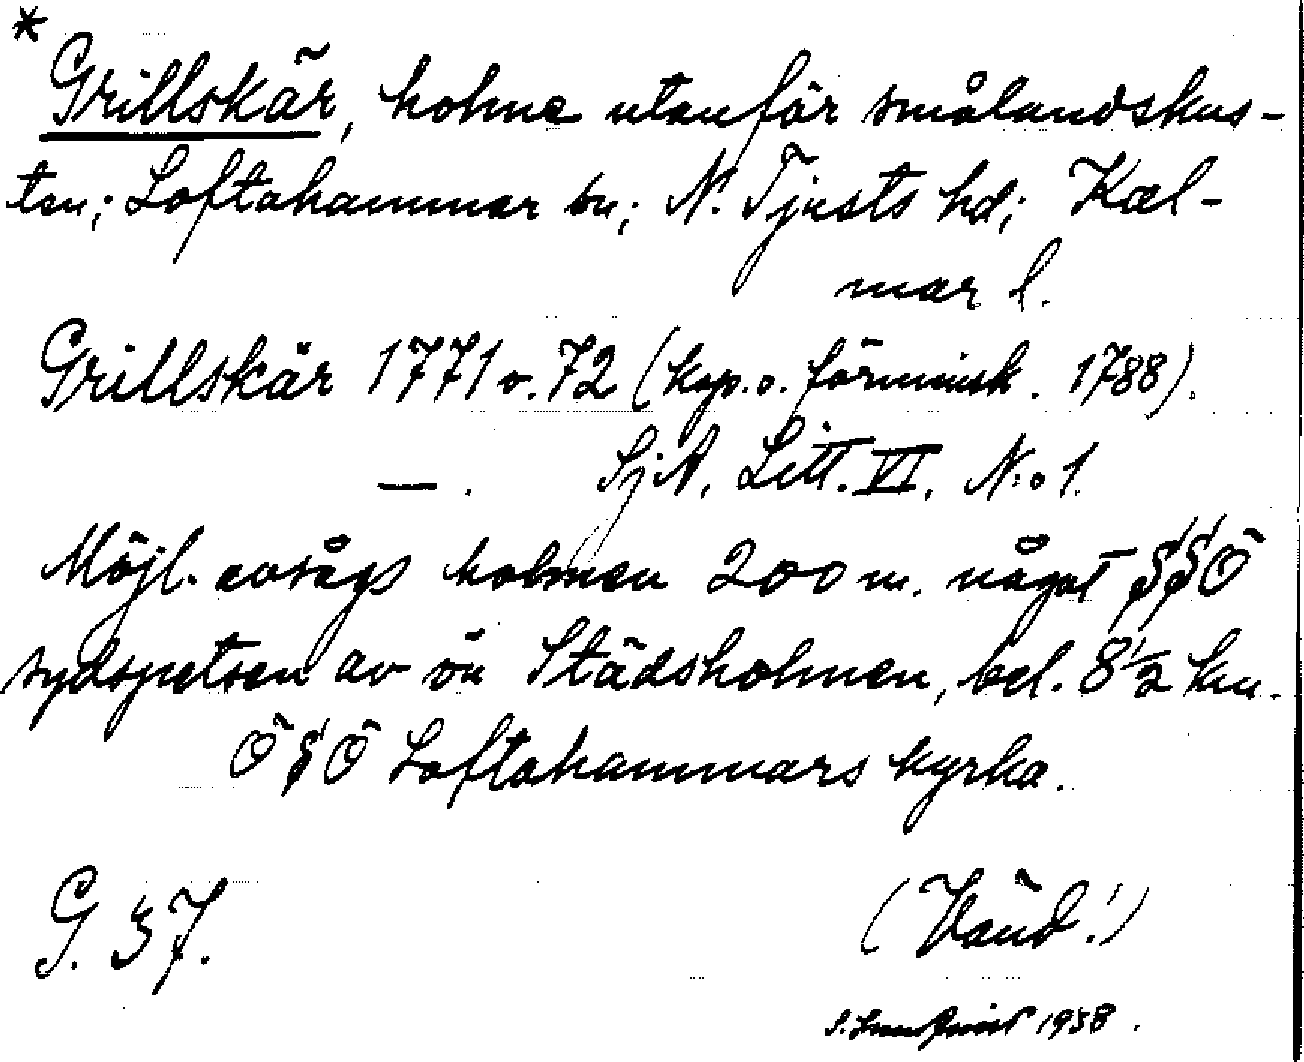 *
Grillskär, holme utanför smålandskus-
ten; Loftahammar sn; N. Tjusts hd; Kal-
mar l.
Grillskär 1771 o. 72 (kop. o. förminsk. 1788).
—. SjA, Litt. VI, N:o 1.
Möjl. avsågs holmen 200 m. något SSÖ
sydspetsen av ön Städsholmen, bel. 8 1/2 km.
ÖSÖ Loftahammars kyrka.
G. 37. (Vänd!)
1938.